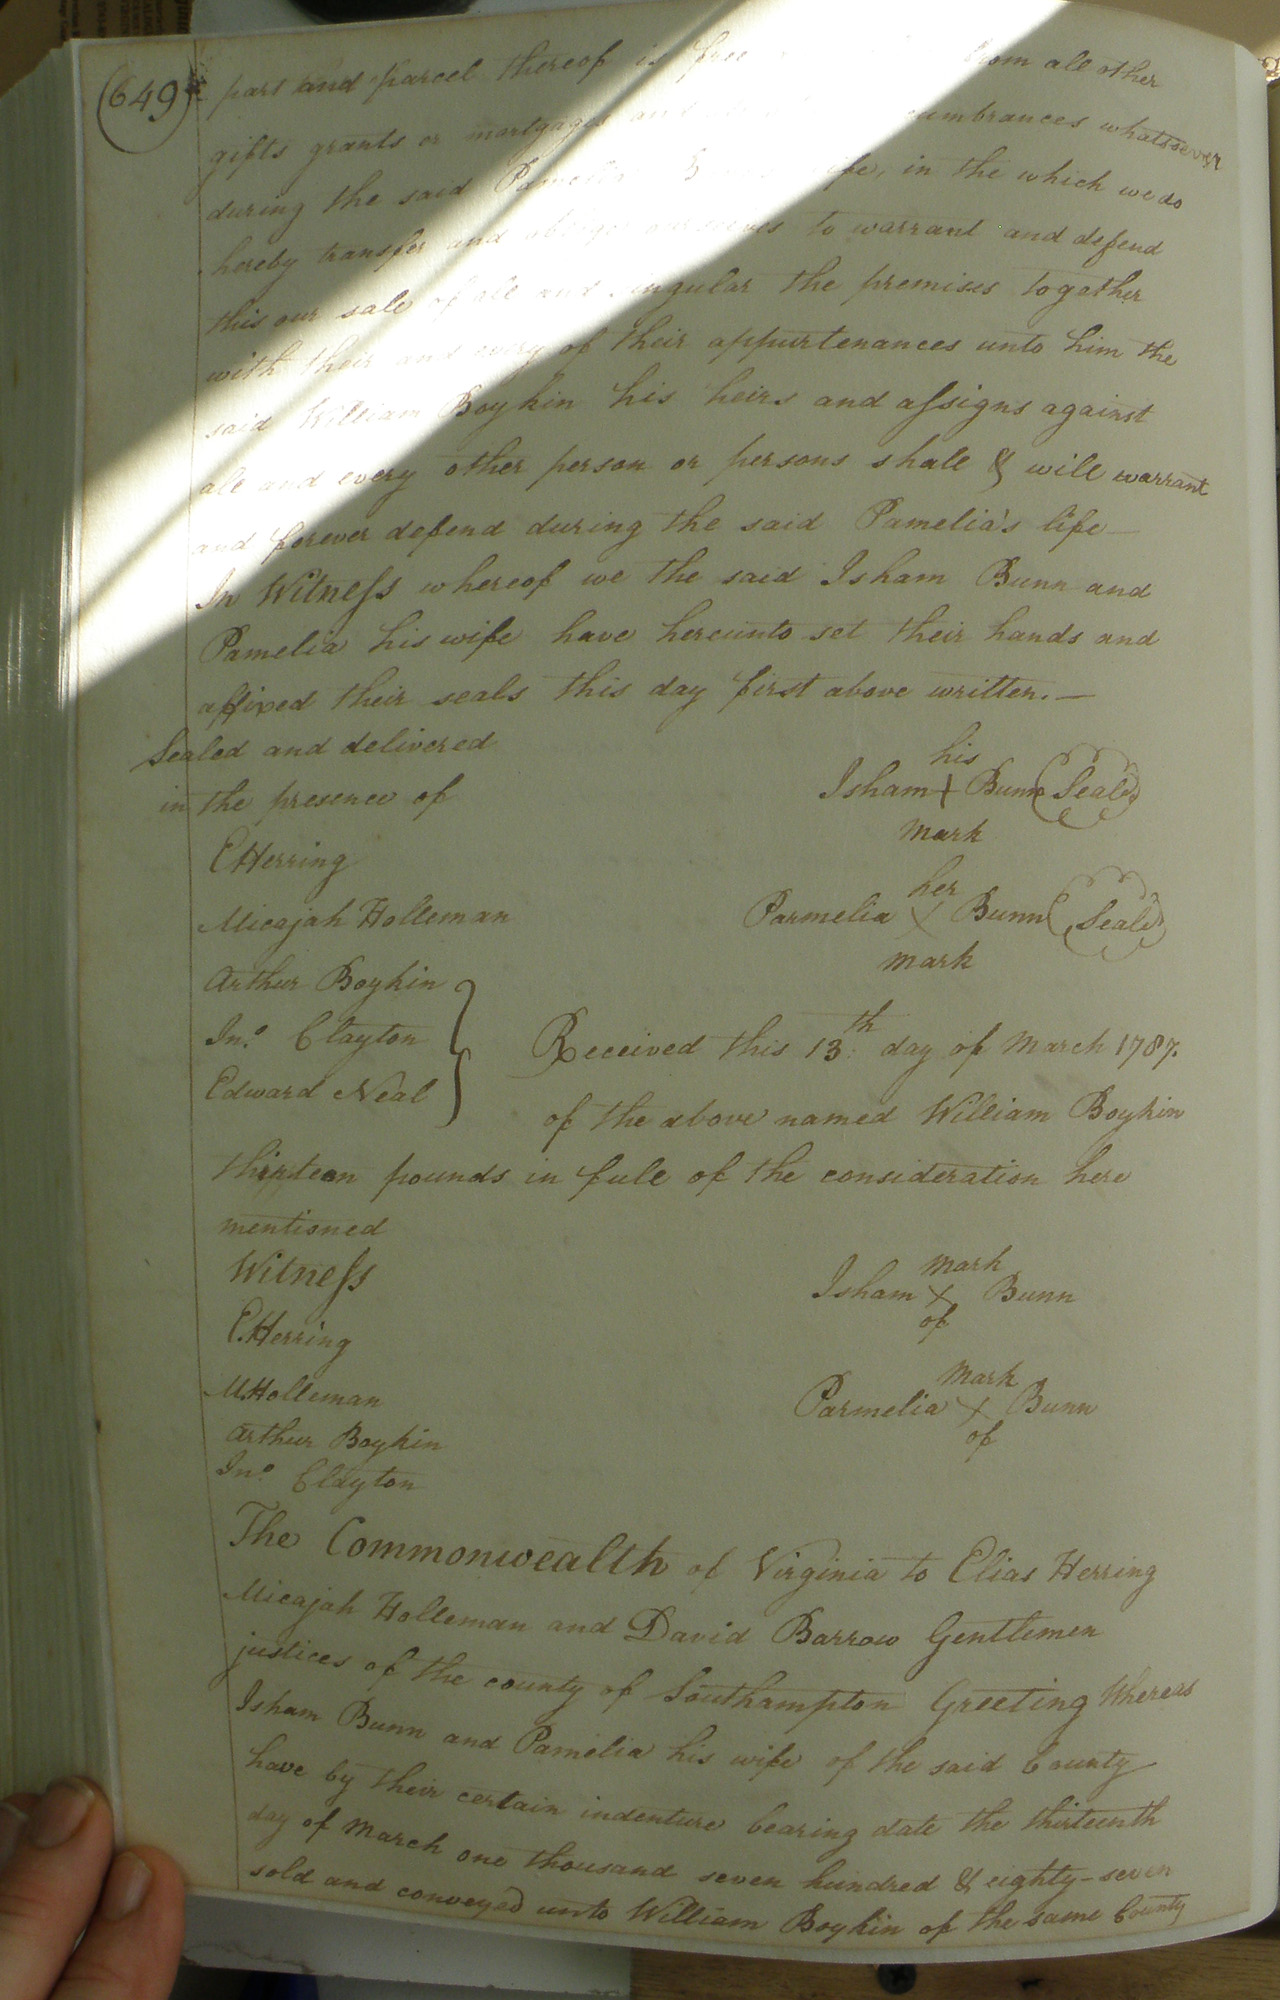 (649)
part and parcel thereof is free from all other
gifts grants or mortgages and cumbrances whatsoever
during the said Pamelia life, in the which we do
hereby transfer and oblige ourselves to warrant and defend
this our sale of all and singular the premises together
with their and every of their appurtenances unto him the
said William Boykin his heirs and assigns against
all and every other person or persons shall & will warrant
and forever defend during the said Pamelia's life —
In Witness whereof we the said Isham Bunn and
Pamelia his wife have hereunto set their hands and
affixed their seals this day first above written. —
Sealed and delivered
in the presence of
his
Isham + Bunn (Seal)
mark
E Herring
her
Micajah Holleman
Parmelia X Bunn (Seal)
mark
Arthur Boykin
Jno. Clayton
Edward Neal
Received this 13th day of March 1787.
of the above named William Boykin
thirteen pounds in full of the consideration here
mentioned
Witness
mark
Isham X Bunn
of
E. Herring
M Holleman
mark
Parmelia X Bunn
of
Arthur Boykin
Jno. Clayton
The Commonwealth of Virginia to Elias Herring
Micajah Holleman and David Barrow Gentlemen
justices of the county of Southampton Greeting Whereas
Isham Bunn and Pamelia his wife of the said County
have by their certain indenture bearing date the thirteenth
day of March one thousand seven hundred & eighty-seven
sold and conveyed unto William Boykin of the same County